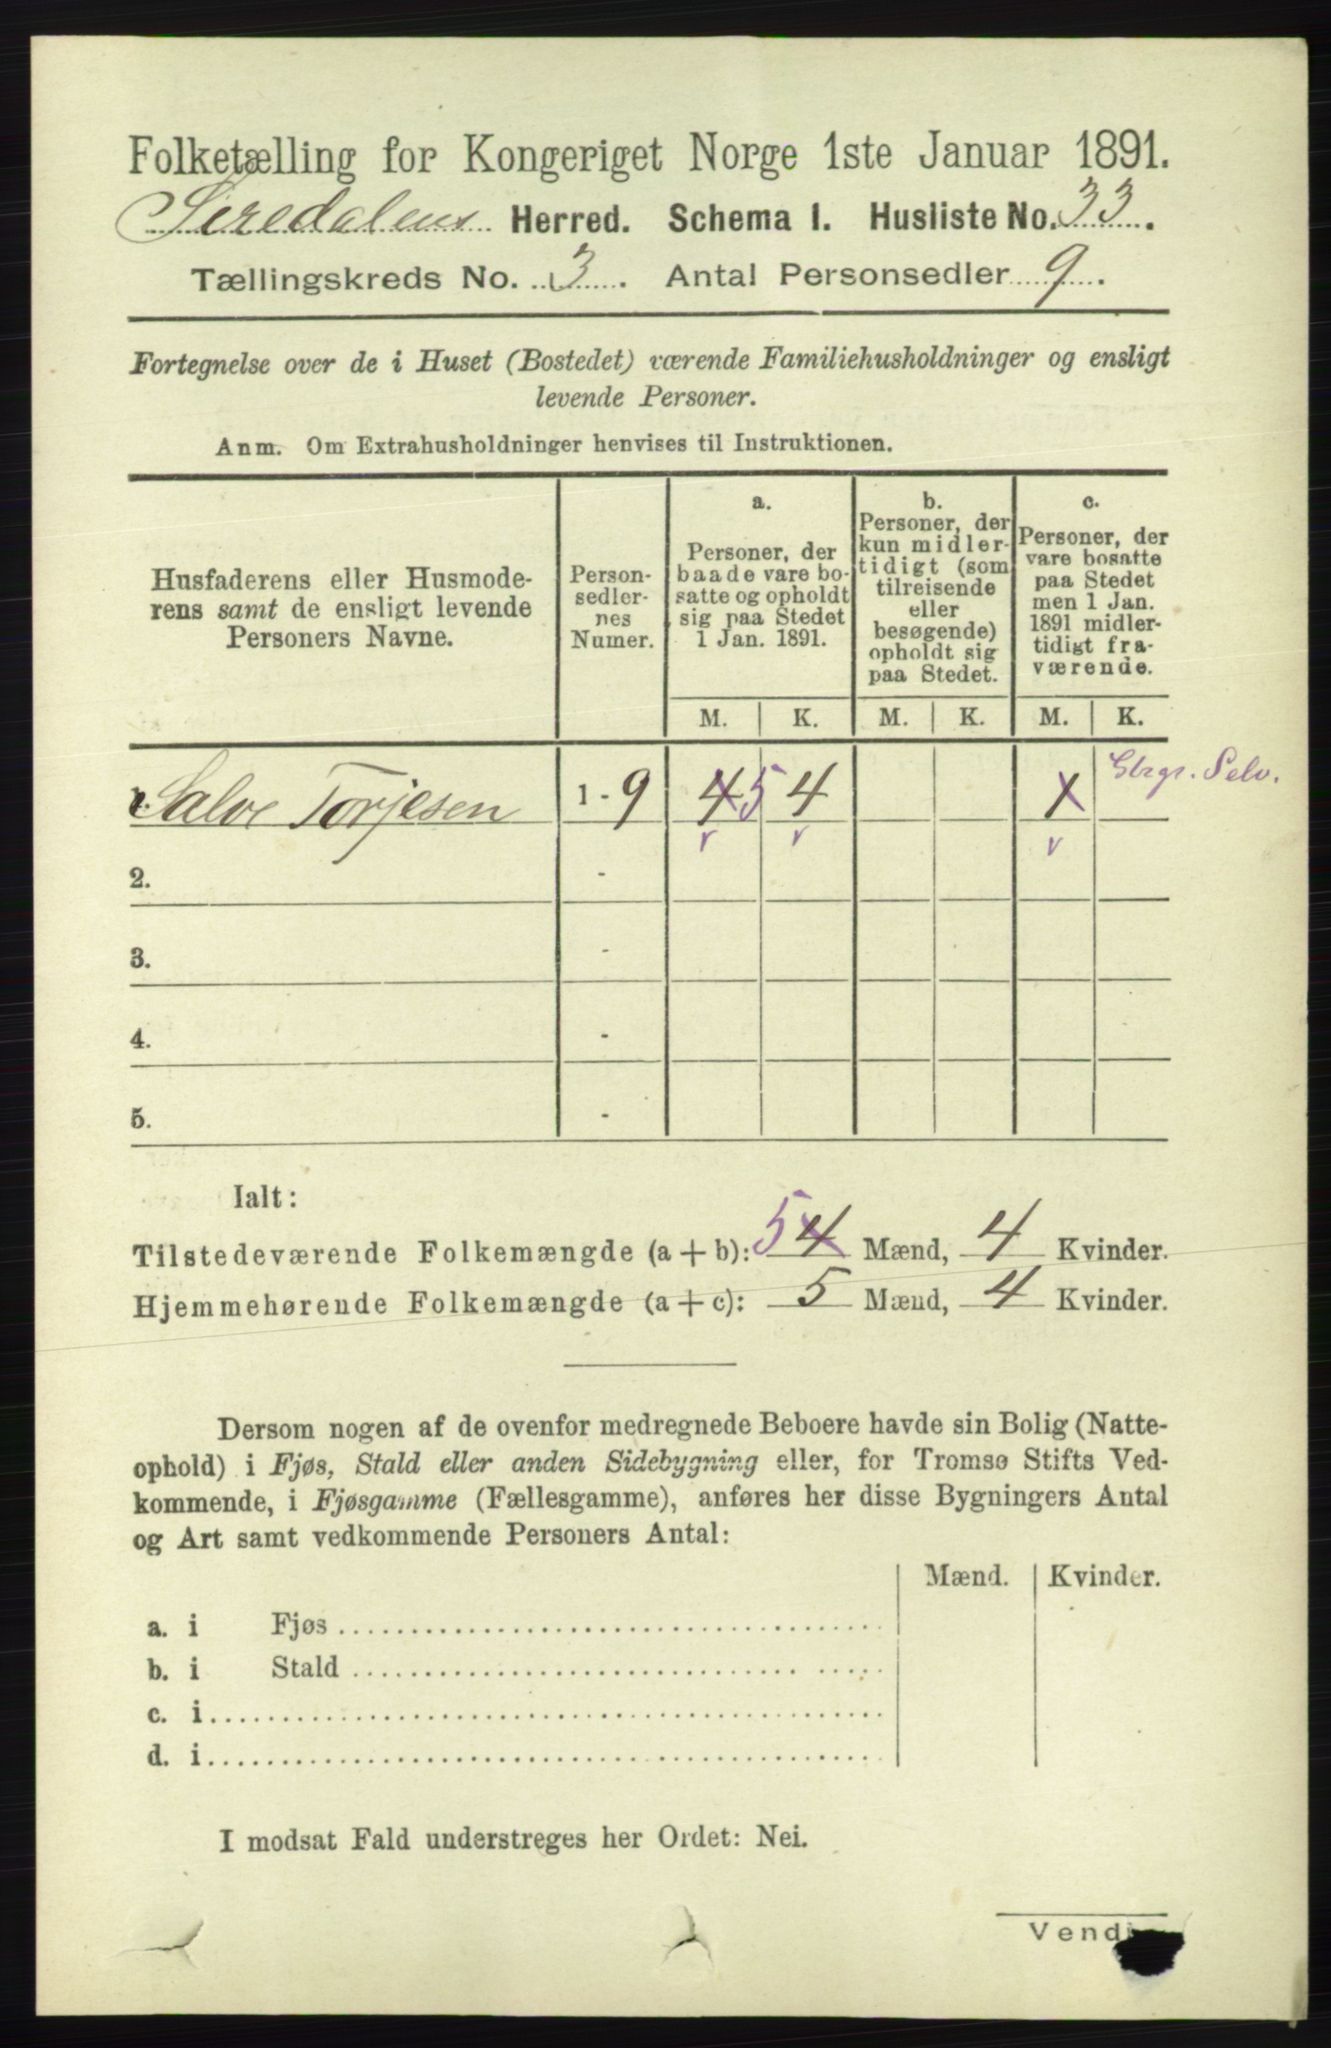 Folketælling for Kongeriget Norge 1ste Januar 1891.
Siredalens Herred. Schema 1. Husliste No. 33.
Tællingskreds No. 3. Antal Personsedler 9.
Fortegnelse over de i Huset (Bostedet) værende Familiehusholdninger og ensligt
levende Personer.
Anm. Om Extrahusholdninger henvises til Instruktionen.
Husfaderens eller Husmode-
rens samt de ensligt levende
Personers Navne.
Person-
sedler-
nes
Numer.
a.
Personer, der
baade vare bo-
satte og opholdt
sig paa Stedet
1 Jan. 1891.
b.
Personer, der
kun midler-
tidigt (som
tilreisende
eller
besøgende)
opholdt sig
paa Stedet.
c.
Personer, der
vare bosatte
paa Stedet
men 1 Jan.
1891 midler-
tidigt fra-
værende.
M. K. M. K. M. K.
1. Salve Torjesen 1 - 9 4 5 4 1
2. -
3. -
4. -
5. -
Ialt:
Tilstedeværende Folkemængde (a + b): 5 4 Mænd, 4 Kvinder.
Hjemmehørende Folkemængde (a + c): 5 Mænd, 4 Kvinder.
Dersom nogen af de ovenfor medregnede Beboere havde sin Bolig (Natte-
ophold) i Fjøs, Stald eller anden Sidebygning eller, for Tromsø Stifts Ved-
kommende, i Fjøsgamme (Fællesgamme), anføres her disse Bygningers Antal
og Art samt vedkommende Personers Antal:
Mænd. Kvinder.
a. i Fjøs
b. i Stald
c. i
d. i
I modsat Fald understreges her Ordet: Nei.